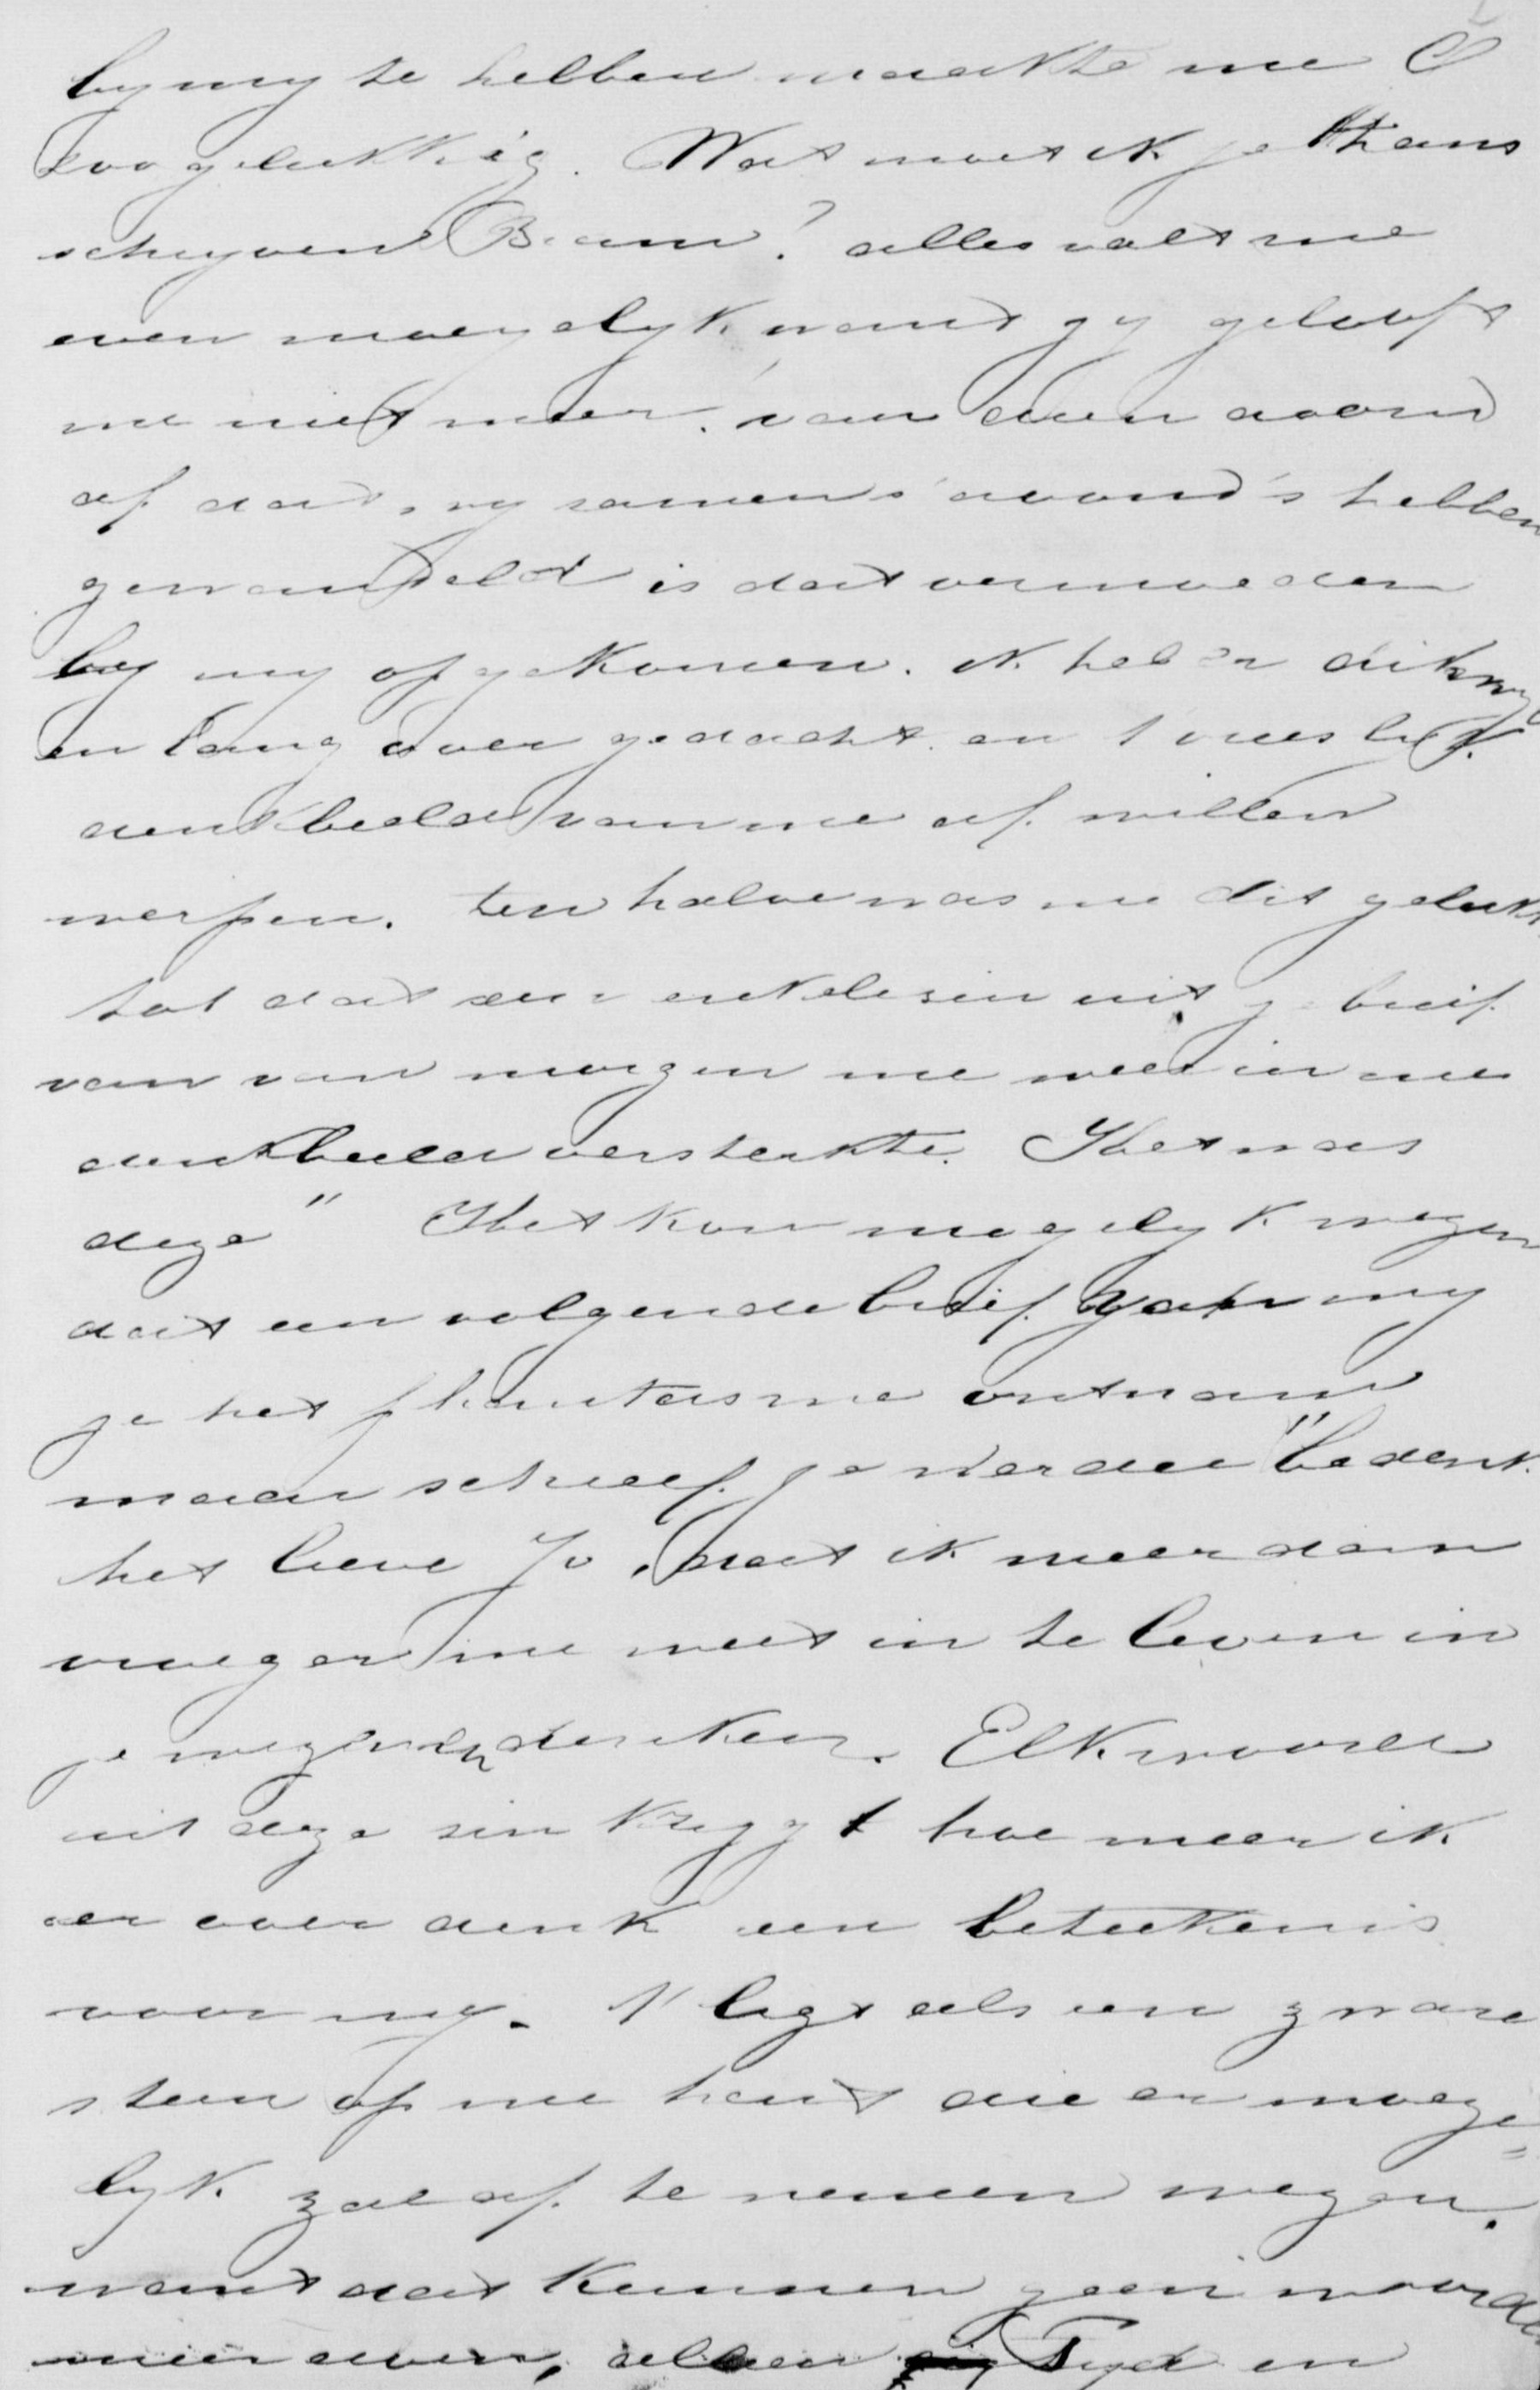 by my te hebben maakte me O
zoo gelukkig. Wat moet ik je thans
schryven Bram? alles valt me
even moeyelyk want gy gelooft
me niet meer. van dien avond
af dat wy samen s'avond's hebben
gewandeld is dat vermoeden
by my opgekomen. ik heb er dikwyls
en lang over gedacht en
denkbeeld van me af willen
werpen. ten halve was me dit gelukt
tot dat een enkele sin uit je brief
van van morgen me weer in me
denkbeeld versterkte. Het was
deze " Het kon mogelyk wezen
dat een volgende brief van my
je het phantasme ontnam
maar schreef je verder "bedenk
het lieve Jo, dat ik meer dan
vroeger me weet in te leven in
je wezen en denken. Elk woord
uit deze sin krygt hoe meer ik
er over denk een beteekenis
voor my. 't ligt als een zware
steen op me hart die er moege=
lyk zal af te nemen wezen.
want dat kunnen geen woorden
meer doen, alleen Tyd en